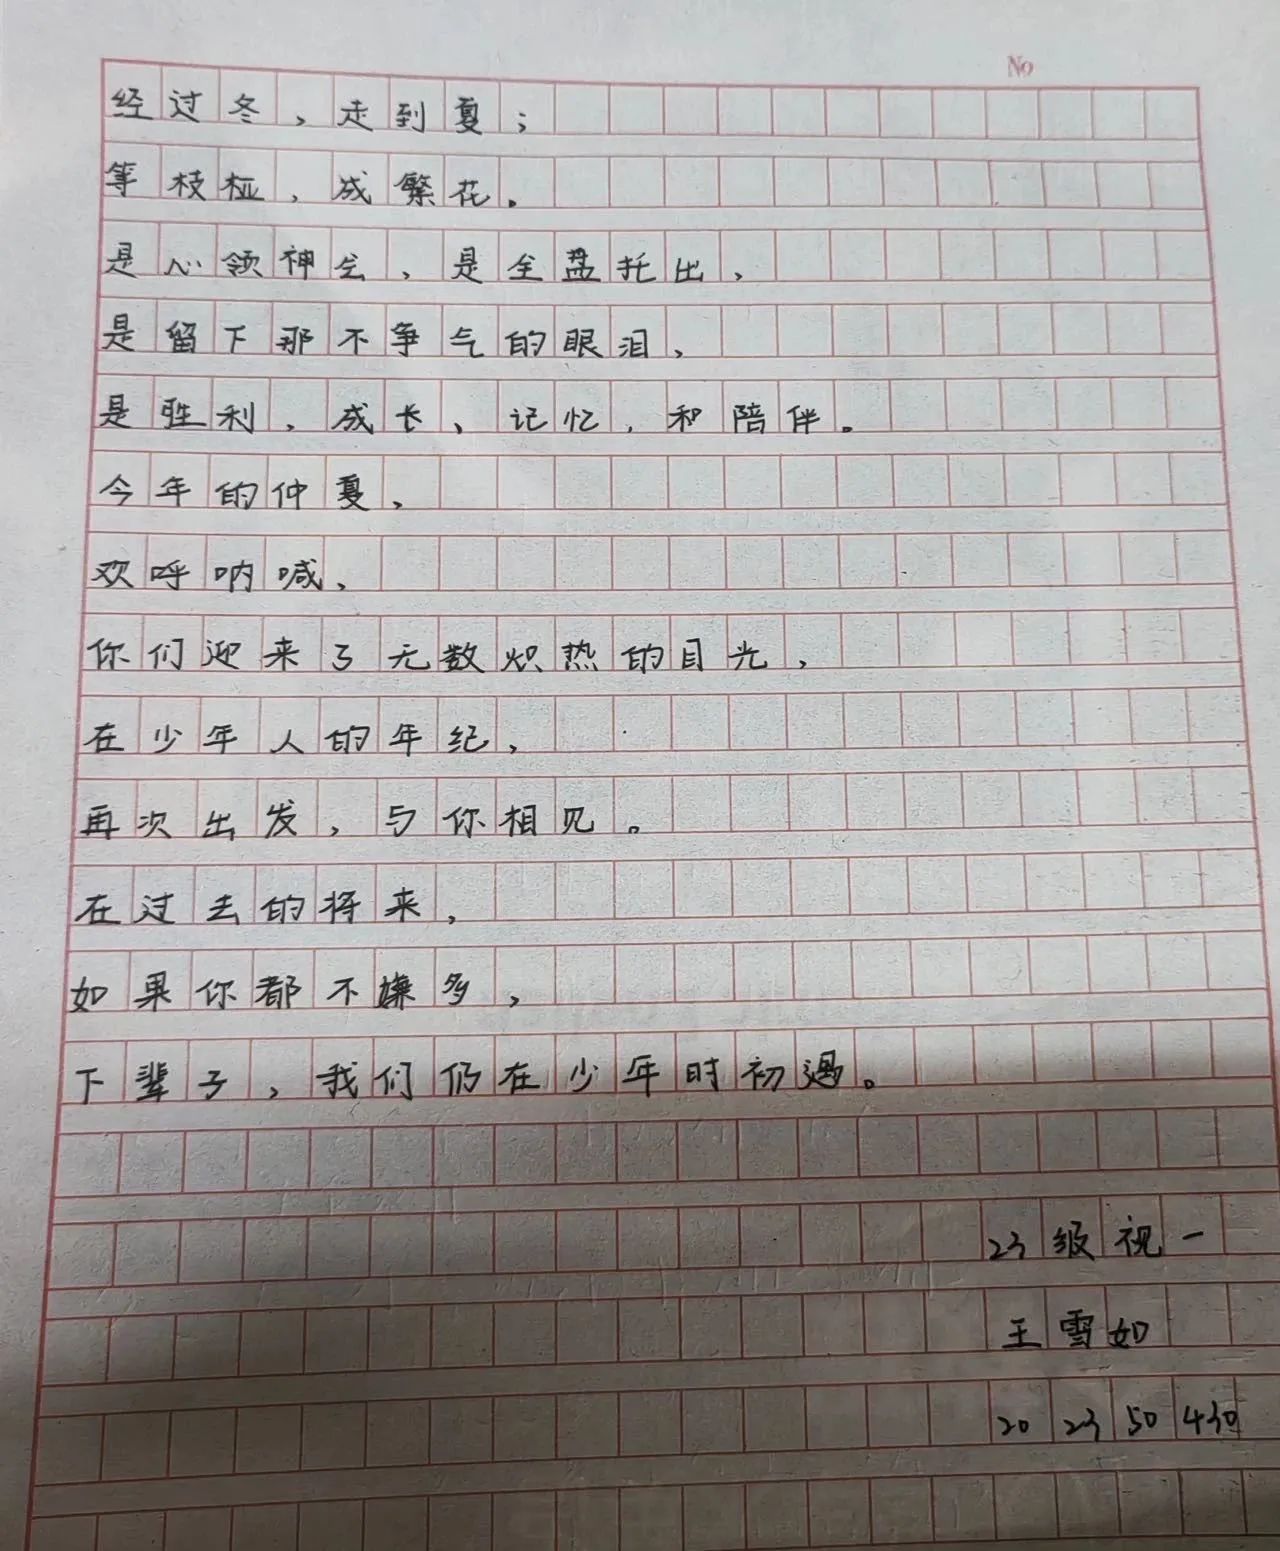 No
经过冬，走到夏；
等枝桠，成繁花。
是心领神会，是全盘托出，
是留下那不争气的眼泪，
是胜利，成长、记忆，和陪伴。
今年的仲夏，
欢呼呐喊，
你们迎来了无数炽热的目光，
在少年人的年纪，
再次出发，与你相见。
在过去的将来，
如果你都不嫌多，
下辈子，我们仍在少年时初遇。
23级视一
王雪如
202350430